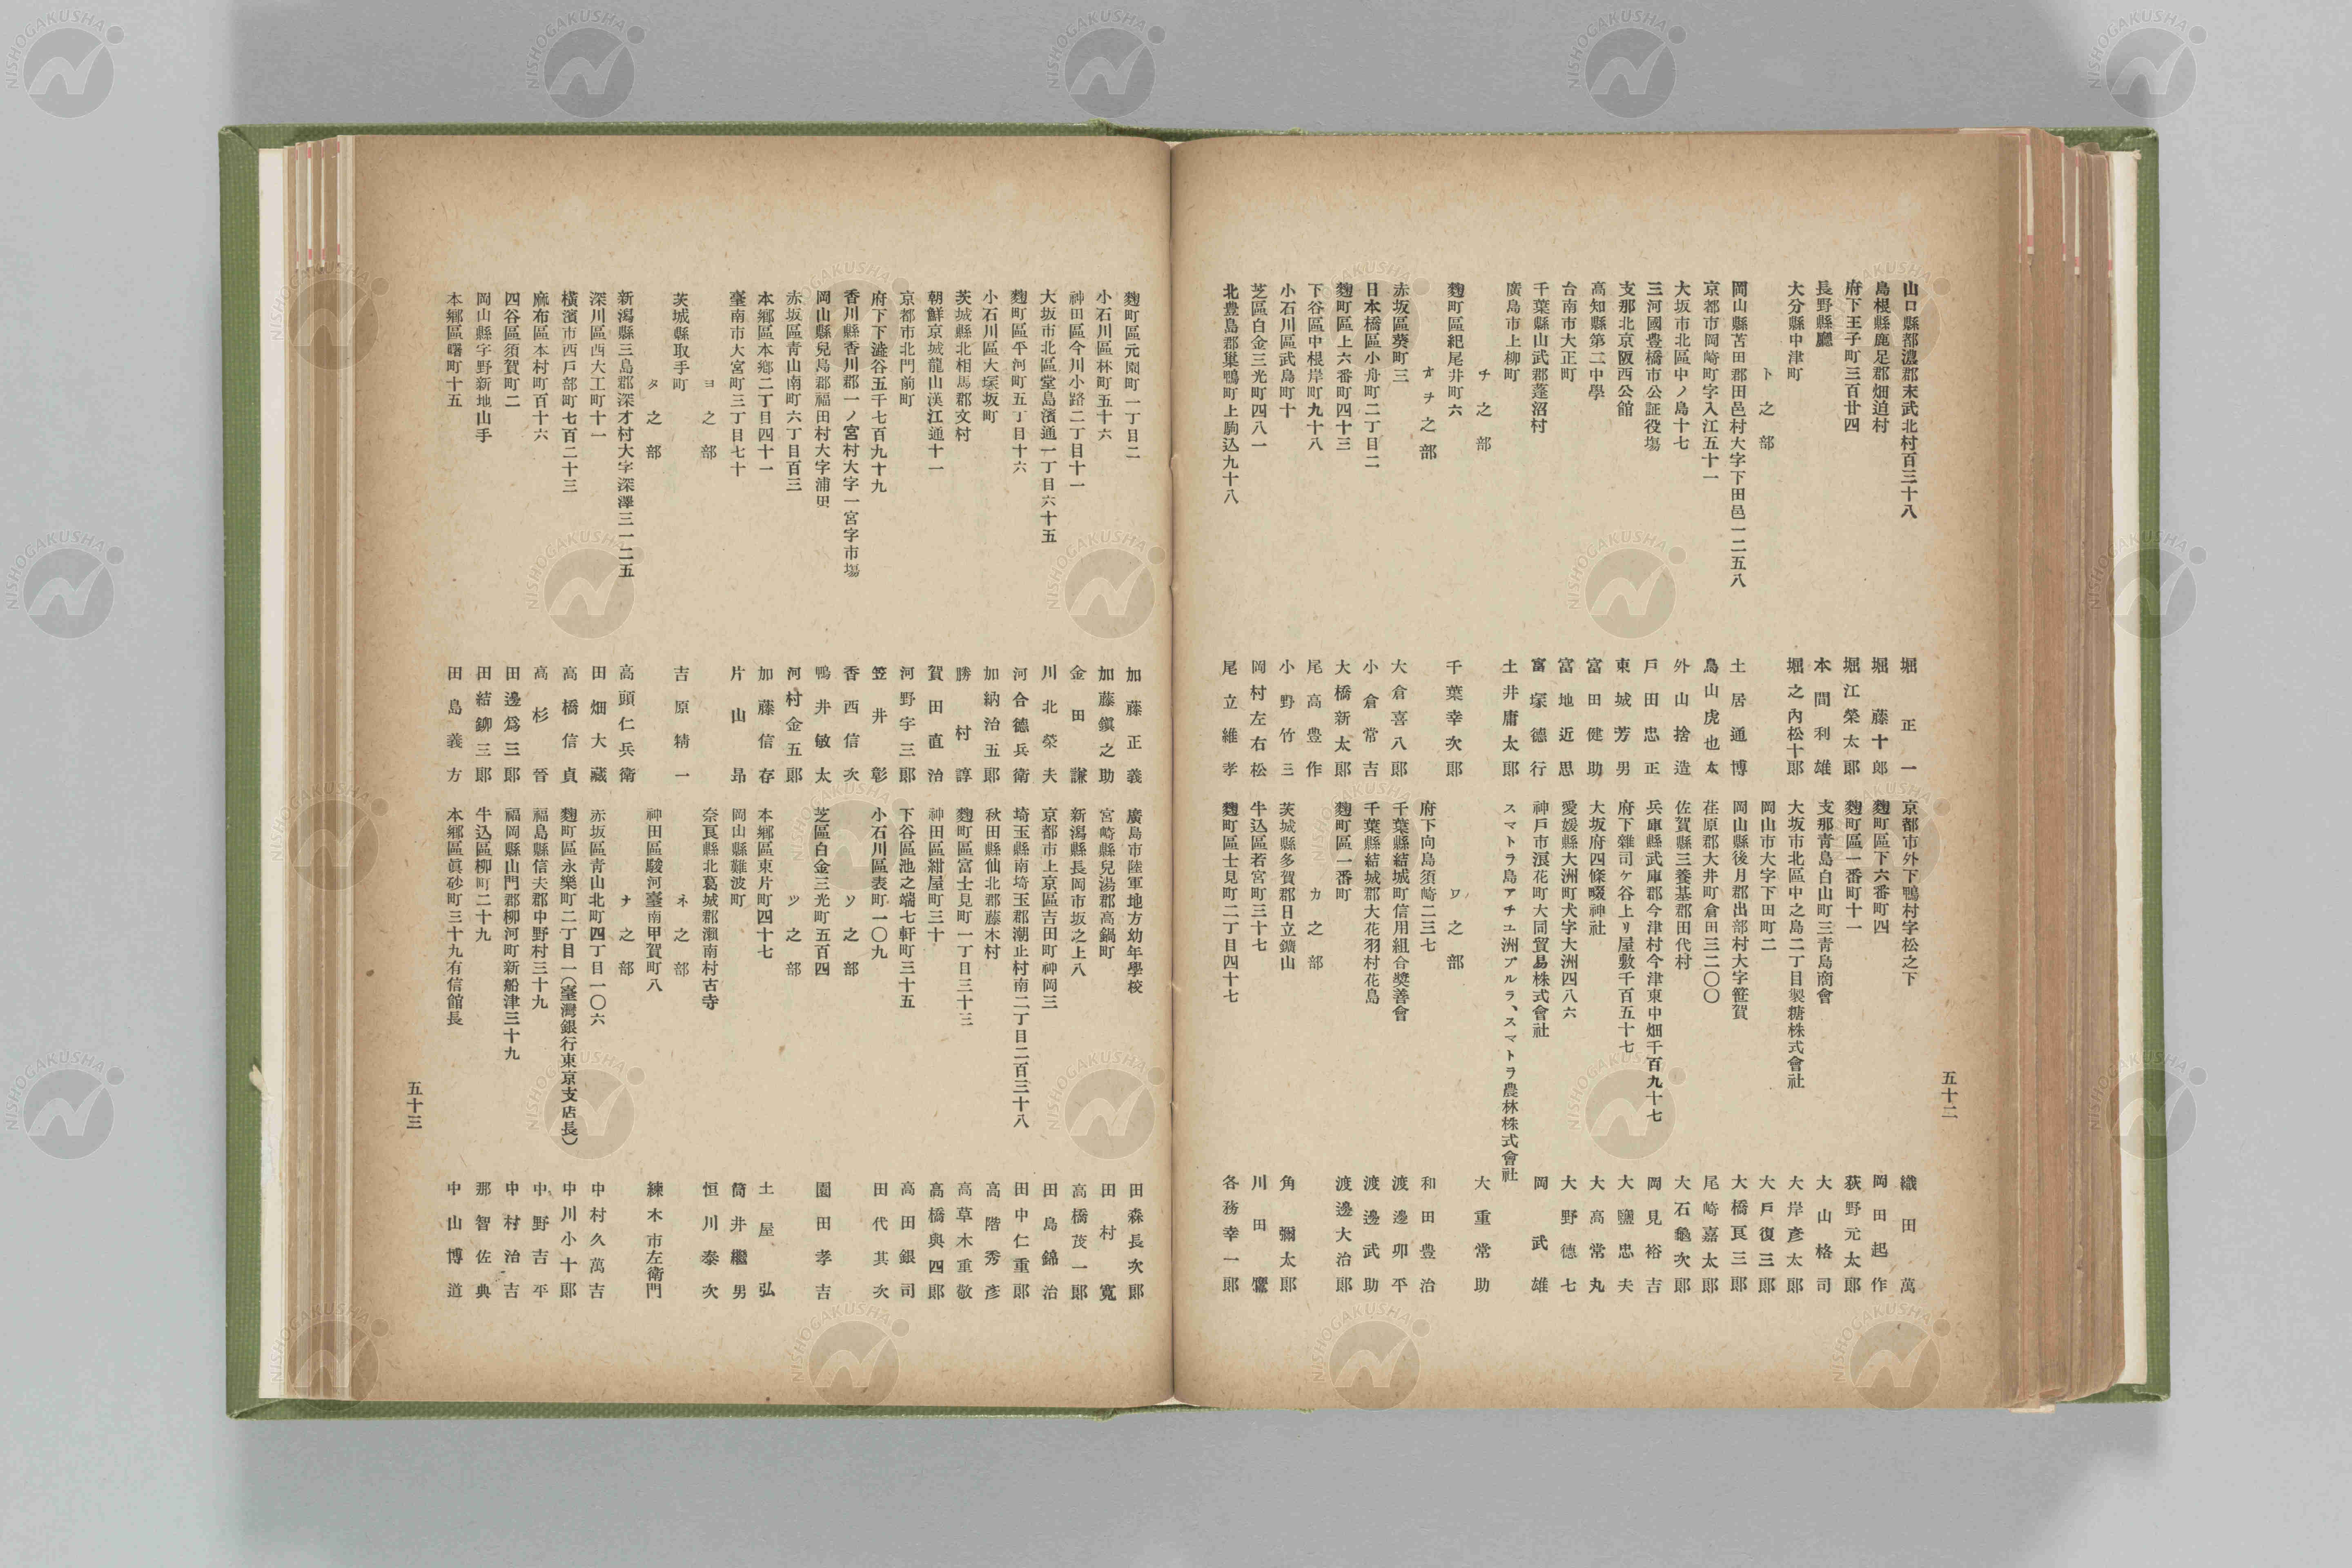 山口縣都濃郡末武北村百三十八 堀正一
島根縣鹿足郡畑迫村 堀藤十郎
府下王子町三百廿四 堀江榮太郎
長野縣廳 本間利雄
大分縣中津町 堀之內松十郎
ト之部
岡山縣苫田郡田邑村大字下田邑一二五八 土居通博
京都市岡崎町字入江五十一 鳥山虎也太
大坂市北區中ノ島十七 外山捨造
三河國豊橋市公証役塲 戸田忠正
支那北京阪西公館 東城芳男
高知縣第二中學 富田健助
台南市大正町 富地近思
千葉縣山武郡蓬沼村 富塚德行
廣島市上柳町 土井庸太郎
チ之部
麴町區紀尾井町六 千葉幸次郎
オヲ之部
赤坂區葵町三 大倉喜八郎
日本橋區小舟町二丁目二 小倉常吉
麴町區上六番町四十三 大橋新太郎
下谷區中根岸町九十八 尾高豊作
小石川區武島町十 小野竹三
芝區白金三光町四八一 岡村左右松
北豊島郡巢鴨町上駒込九十八 尾立維孝
京都市外下鴨村字松之下 織田萬
麴町區下六番町四 岡田起作
麴町區一番町十一 荻野元太郎
支那青島白山町三青島商會 大山格司
大坂市北區中之島二丁目製糖株式會社 大岸彥太郎
岡山市大字下田町二 大戸復三郎
岡山縣後月郡出部村大字笹賀 大橋良三郎
荏原郡大井町倉田三二〇〇 尾崎嘉太郎
佐賀縣三養基郡田代村 大石龜次郎
兵庫縣武庫郡今津村今津東中畑千百九十七 岡見裕吉
府下雜司ケ谷上リ屋敷千百五十七 大鹽忠夫
大坂府四條畷神社 大高常丸
愛媛縣大洲町大字大洲四八六 大野德七
神戸市浪花町大同貿易株式會社 岡武雄
スマトラ島アチユ洲プルラ、スマトラ農林株式會社
大重常助
ワ之部
府下向島須崎二三七 和田豊治
千葉縣結城町信用組合奬善會 渡邊卯平
千葉縣結城郡大花羽村花島 渡邊武助
麴町區一番町 渡邊大治郎
カ之部
茨城縣多賀郡日立鑛山 角彌太郎
牛込區若宮町三十七 川田鷹
麴町區士見町二丁目四十七 各務幸一郎
五十二
麴町區元園町一丁目二 加藤正義
小石川區林町五十六 加藤鎭之助
神田區今川小路二丁目十一 金田謙
大坂市北區堂島濱通一丁目六十五 川北榮夫
麴町區平河町五丁目十六 河合德兵衛
小石川區大塚坂町 加納治五郎
茨城縣北相馬郡文村 勝村諄
朝鮮京城龍山漢江通十一 賀田直治
京都市北門前町 河野宇三郎
府下下澁谷五千七百九十九 笠井彰
香川縣香川郡一ノ宮村大字一宮字市塲 香西信次
岡山縣兒島郡福田村大字浦田 鴨井敏太
赤坂區靑山南町六丁目百三 河村金五郎
本鄕區本鄕二丁目四十一 加藤信存
臺南市大宮町三丁目七十 片山昻
ヨ之部
茨城縣取手町 吉原精一
タ之部
新潟縣三島郡深才村大字深澤三一二五 高頭仁兵衛
深川區西大工町十一 田畑大藏
橫濱市西戸部町七百二十三 高橋信貞
麻布區本村町百十六 高杉晉
四谷區須賀町二 田邊爲三郎
岡山縣宇野新地山手 田結鉚三郎
本鄕區曙町十五 田島義方
廣島市陸軍地方幼年學校 田森長次郎
宮崎縣兒湯郡高鍋町 田村寬
新潟縣長岡市坂之上八 高橋茂一郎
京都市上京區吉田町神岡三 田島錦治
埼玉縣南埼玉郡潮止村南二丁目二百三十八 田中仁重郎
秋田縣仙北郡藤木村 高階秀彥
麴町區富士見町一丁目三十三 高草木重敬
神田區紺屋町三十 高橋與四郎
下谷區池之端七軒町三十五 高田銀司
小石川區表町一〇九 田代其次
ソ之部
芝區白金三光町五百四 園田孝吉
ツ之部
本鄕區東片町四十七 土屋弘
岡山縣難波町 筒井繼男
奈良縣北葛城郡瀨南村古寺 恒川泰次
ネ之部
神田區駿河臺南甲賀町八 練木市左衛門
ナ之部
赤坂區靑山北町四丁目一〇六 中村久萬吉
麴町區永樂町二丁目一(臺灣銀行東京支店長) 中川小十郎
福島縣信夫郡中野村三十九 中野吉平
福岡縣山門郡柳河町新船津三十九 中村治吉
牛込區柳町二十九 那智佐典
本鄕區眞砂町三十九有信館長 中山博道
五十三
NISHOGAKUSHA